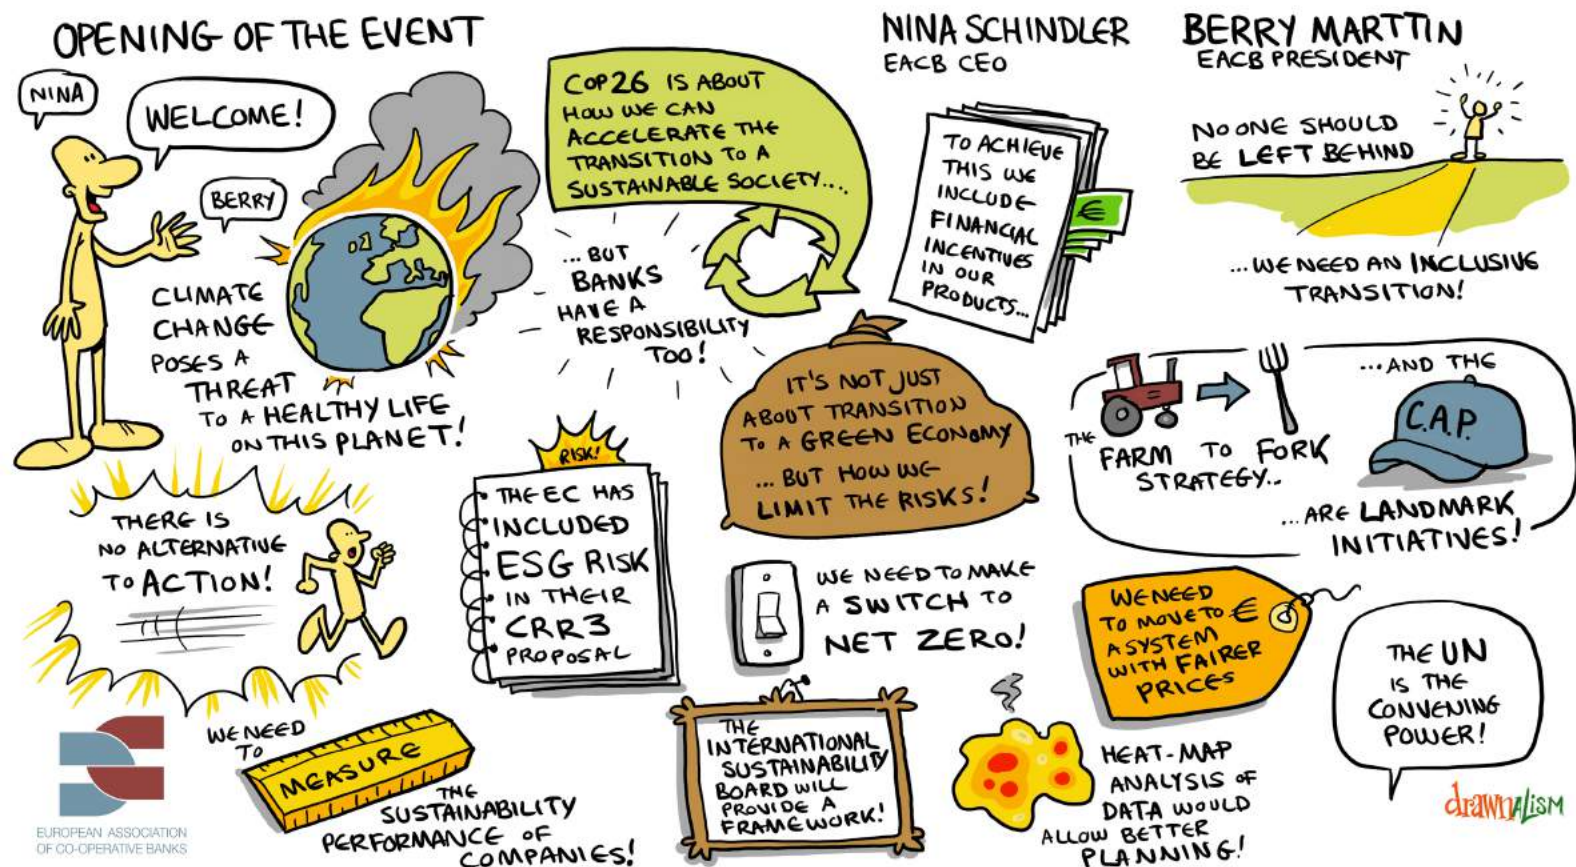 OPENING OF THE EVENT
NINA SCHINDLER
EACB CEO
BERRY MARTTIN
EACB PRESIDENT
NINA
WELCOME!
BERRY
CLIMATE
CHANGE
POSES A
THREAT
TO A HEALTHY LIFE
ON THIS PLANET!
COP26 IS ABOUT
HOW WE CAN
ACCELERATE THE
TRANSITION TO A
SUSTAINABLE SOCIETY....
...BUT
BANKS
HAVE A
RESPONSIBILITY
TOO!
TO ACHIEVE
THIS WE
INCLUDE
FINANCIAL
INCENTIVES
IN OUR
PRODUCTS...
€
NO ONE SHOULD
BE LEFT BEHIND
...WE NEED AN INCLUSIVE
TRANSITION!
THERE IS
NO ALTERNATIVE
TO ACTION!
RISK!
THE EC HAS
INCLUDED
ESG RISK
IN THEIR
CRR3
PROPOSAL
IT'S NOT JUST
ABOUT TRANSITION
TO A GREEN ECONOMY
...BUT HOW WE
LIMIT THE RISKS!
THE
FARM TO FORK
STRATEGY..
...AND THE
C.A.P.
...ARE LANDMARK
INITIATIVES!
WE NEED TO MAKE
A SWITCH TO
NET ZERO!
WE NEED
TO MOVE TO €
A SYSTEM
WITH FAIRER
PRICES
THE UN
IS THE
CONVENING
POWER!
WE NEED
TO
MEASURE
THE
SUSTAINABILITY
PERFORMANCE OF
COMPANIES!
THE
INTERNATIONAL
SUSTAINABILITY
BOARD WILL
PROVIDE A
FRAMEWORK!
HEAT-MAP
ANALYSIS OF
DATA WOULD
ALLOW BETTER
PLANNING!
EUROPEAN ASSOCIATION
OF CO-OPERATIVE BANKS
drawnALISM